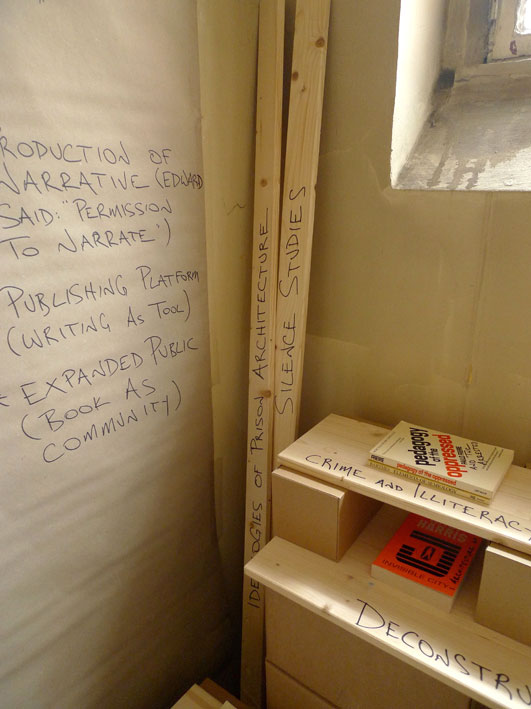 RODUCTION OF
NARRATIVE (EDWARD
SAID: "PERMISSION
TO NARRATE")
PUBLISHING PLATFORM
(WRITING AS TOOL)
* EXPANDED PUBLIC
(BOOK AS
COMMUNITY)
IDEOLOGIES OF PRISON ARCHITECTURE
SILENCE STUDIES
pedagogy
of the
oppressed
pedagogy of the oppressed
CRIME AND ILLITERAC
HARRIS
INVISIBLE CITY
DECONSTRU